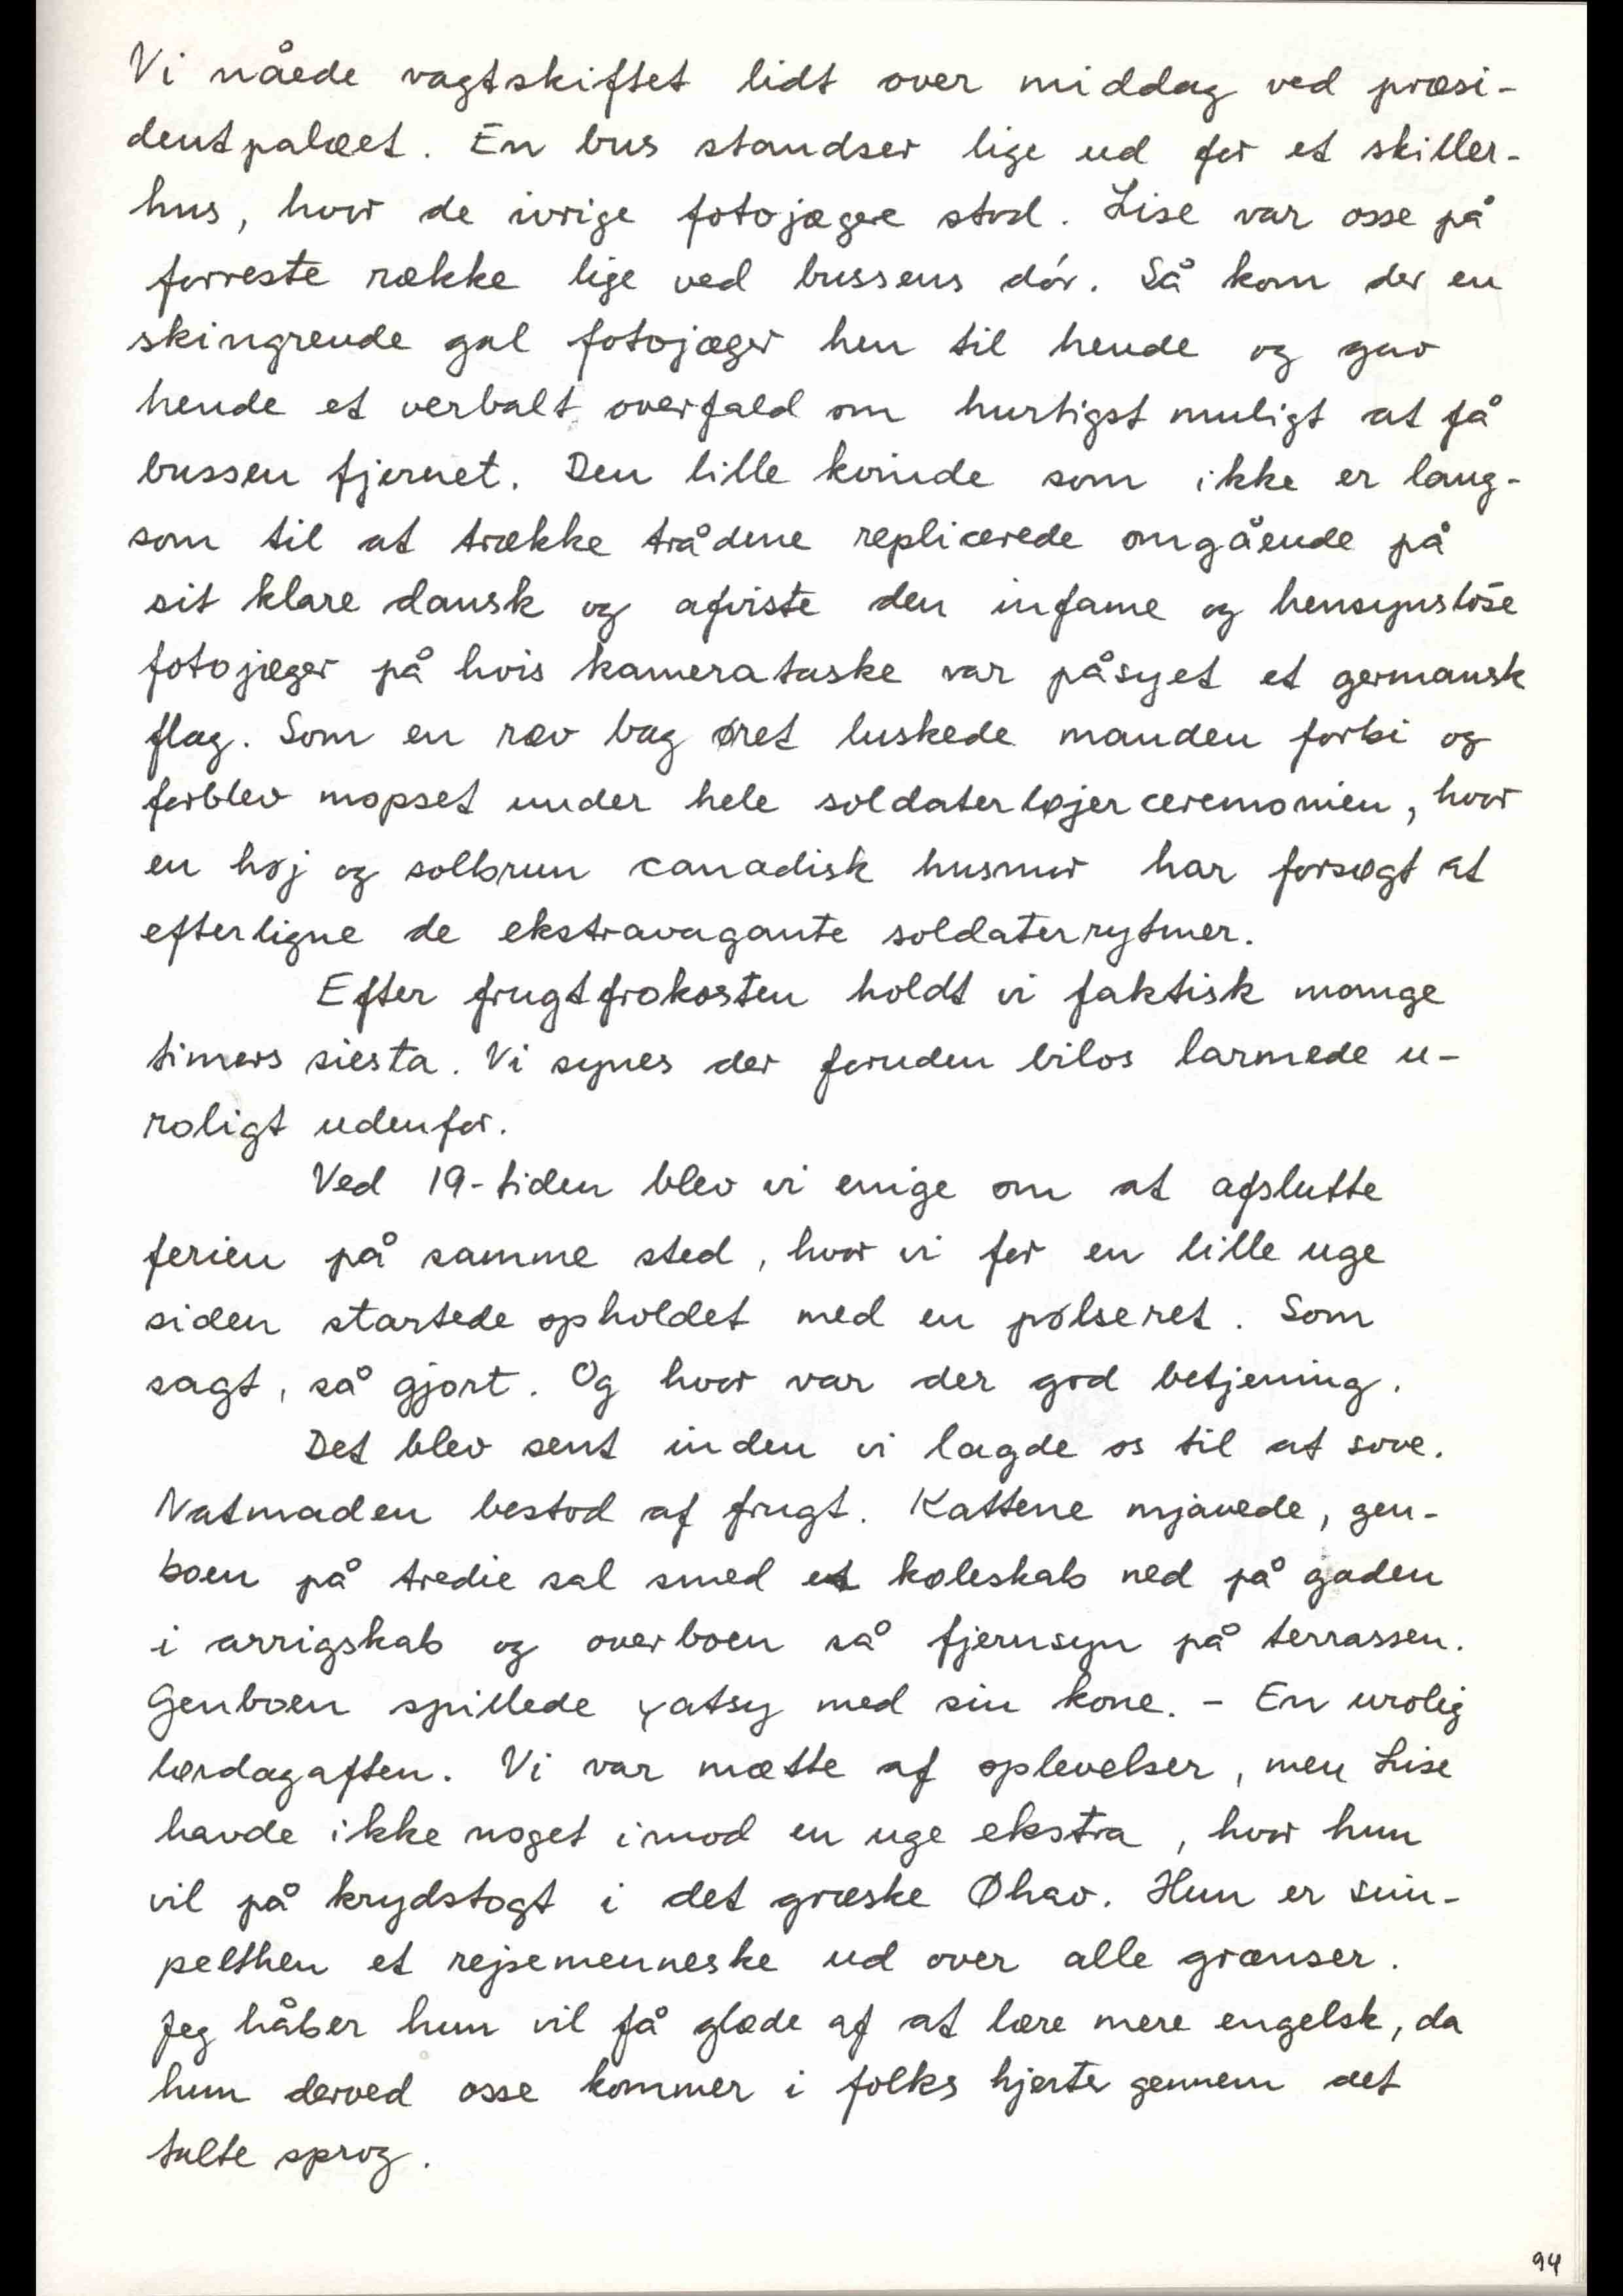 Vi nåede vagtskiftet lidt over middag ved præsi-
dentpalæet. En bus standser lige ud for et skilder-
hus, hvor de ivrige fotojægere stod. Lise var osse på
forreste række lige ved bussens dör. Så kom der en
skingrende gal fotojæger hen til hende og gav
hende et verbalt overfald om hurtigst muligt at få
bussen fjernet. Den lille kvinde som ikke er lang-
som til at trække trådene replicerede omgående på
sit klare dansk og afviste den infame og hensynslöse
fotojæger på hvis kamerataske var påsyet et germansk
flag. Som en ræv bag øret luskede manden forbi og
forblev mopset under hele soldaterløjerceremonien, hvor
en høj og solbrun canadisk husmor har forsøgt at
efterligne de ekstravagante soldaterrytmer.
Efter frugtfrokosten holdt vi faktisk mange
timers siesta. Vi synes der foruden bilos larmede u-
roligt udenfor.
Ved 19-tiden blev vi enige om at afslutte
ferien på samme sted, hvor vi for en lille uge
siden startede opholdet med en pølseret. Som
sagt, så gjort. Og hvor var der god betjening.
Det blev sent inden vi lagde os til at sove.
Natmaden bestod af frugt. Kattene mjavede, gen-
boen på tredie sal smed et køleskab ned på gaden
i arrigskab og overboen så fjernsyn på terrassen.
Genboen spillede yatsy med sin kone. - En urolig
lørdagaften. Vi var mætte af oplevelser, men Lise
havde ikke noget imod en uge ekstra, hvor hun
vil på krydstogt i det græske Øhav. Hun er sim-
pelthen et rejsemenneske ud over alle grænser.
Jeg håber hun vil få glæde af at lære mere engelsk, da
hun derved osse kommer i folks hjerte gennem det
talte sprog.
94